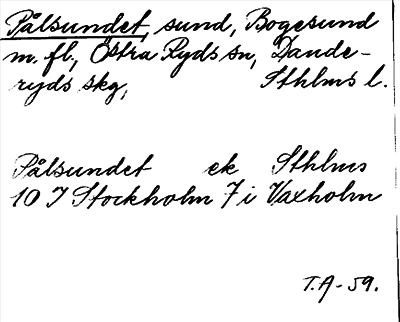 Pålsundet, sund, Bogesund
m. fl., Östra Ryds sn, Dande-
ryds skg, Sthlms l.
Pålsundet ek Sthlms
10 I Stockholm 7 i Vaxholm
T.A-59.